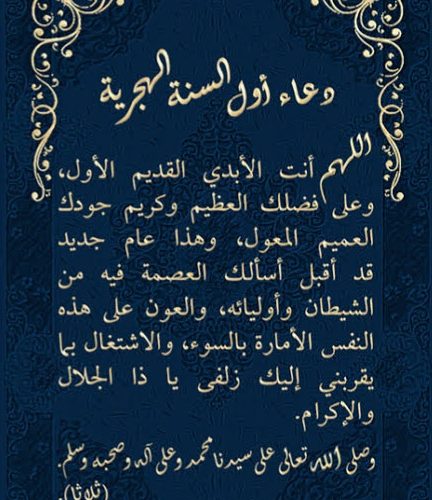 دعاء أول السنة الهجرية
اللهم أنت الأبدي القديم الأول،
وعلى فضلك العظيم وكريم جودك
العميم المعول، وهذا عام جديد
قد أقبل أسألك العصمة فيه من
الشيطان وأوليائه، والعون على هذه
النفس الأمارة بالسوء، والاشتغال بما
يقربني إليك زلفى يا ذا الجلال
والإكرام.
وصلى الله تعالى على سيدنا محمد وعلى آله وصحبه وسلم.
(ثلاثا).